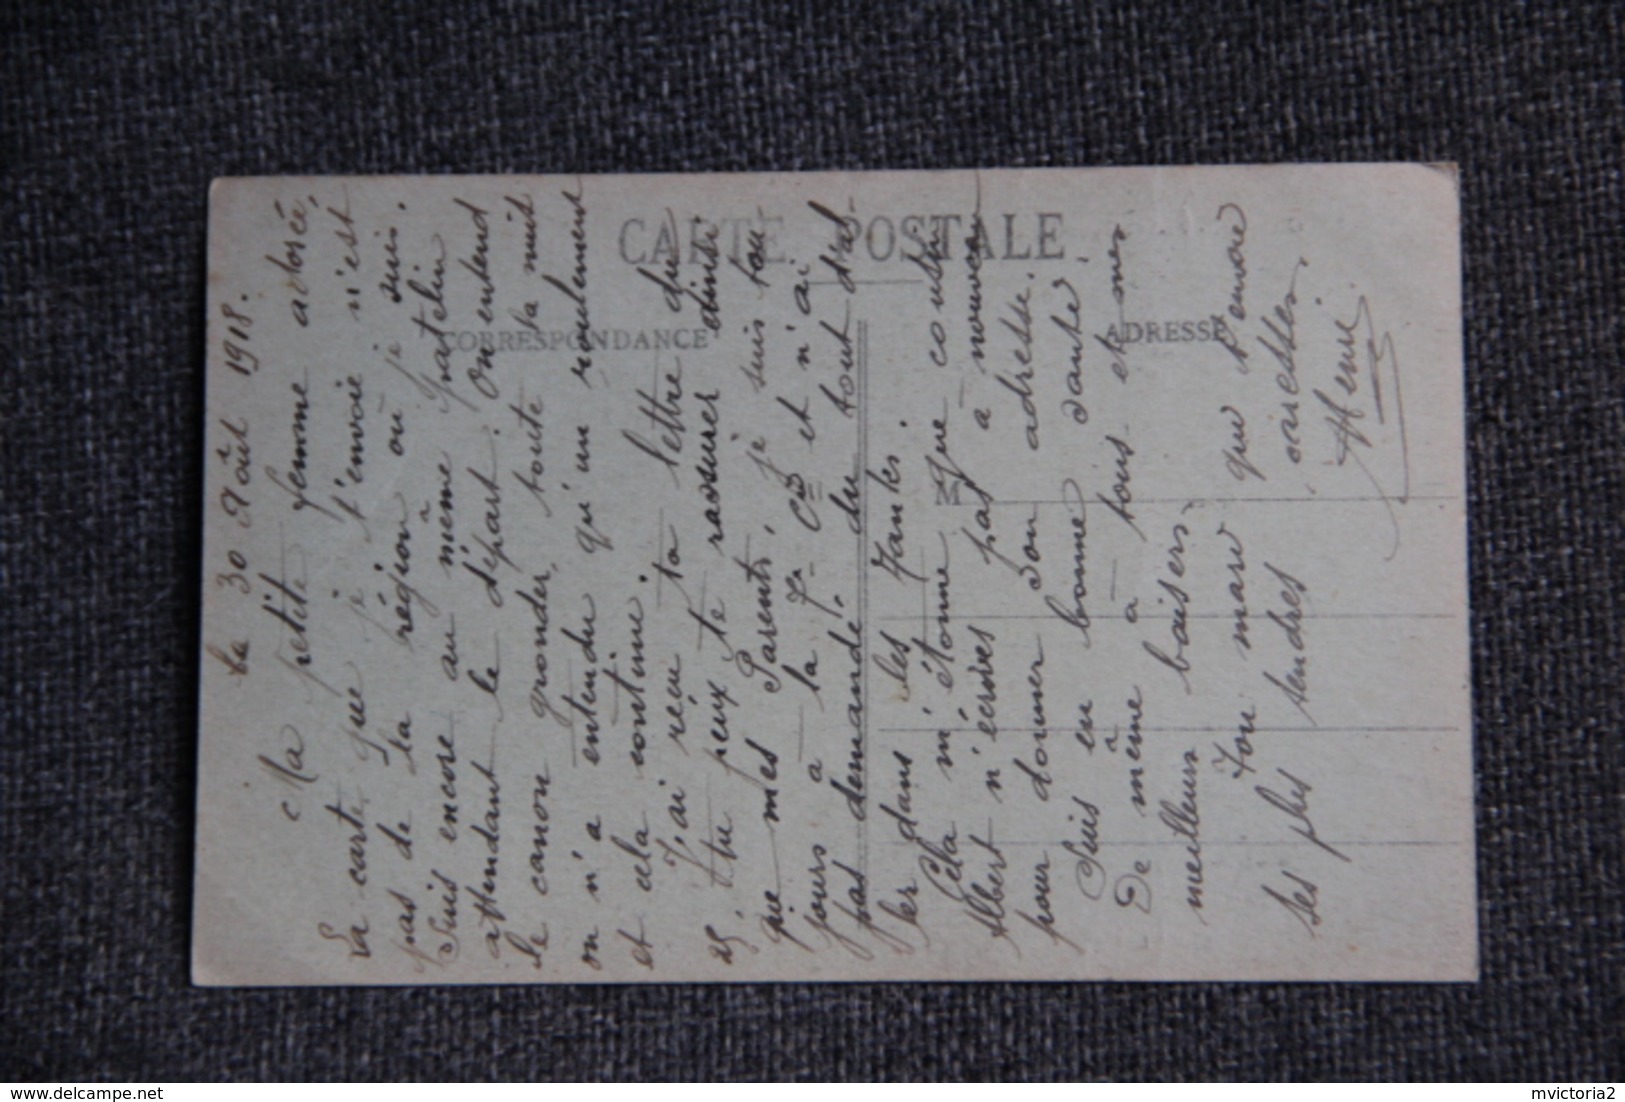 Le 30 Août 1918.
Ma petite femme adorée,
La carte que je t'envoie n'est
pas de la région où je suis.
Suis encore au même patelin
attendant le départ. On entend
le canon gronder, toute la nuit
on n'a entendu qu'un roulement
et cela continue.
J'ai reçu ta lettre du
25. Tu peux te rassurer ainsi
que mes Parents, je suis tou-
jours à la 7e Cie et n'ai
pas demandé, du tout d'al-
ler dans les Tankes.
Cela m'étonne que cousin
Albert n'écrives pas à nouveau
pour donner son adresse.
Suis en bonne santé,
De même à tous et mes
meilleurs baisers.
Ton mari qui t'envoie
ses plus tendres caresses.
Henri
CARTE POSTALE
CORRESPONDANCE
ADRESSE
M
delcampe.net
mvictoria2